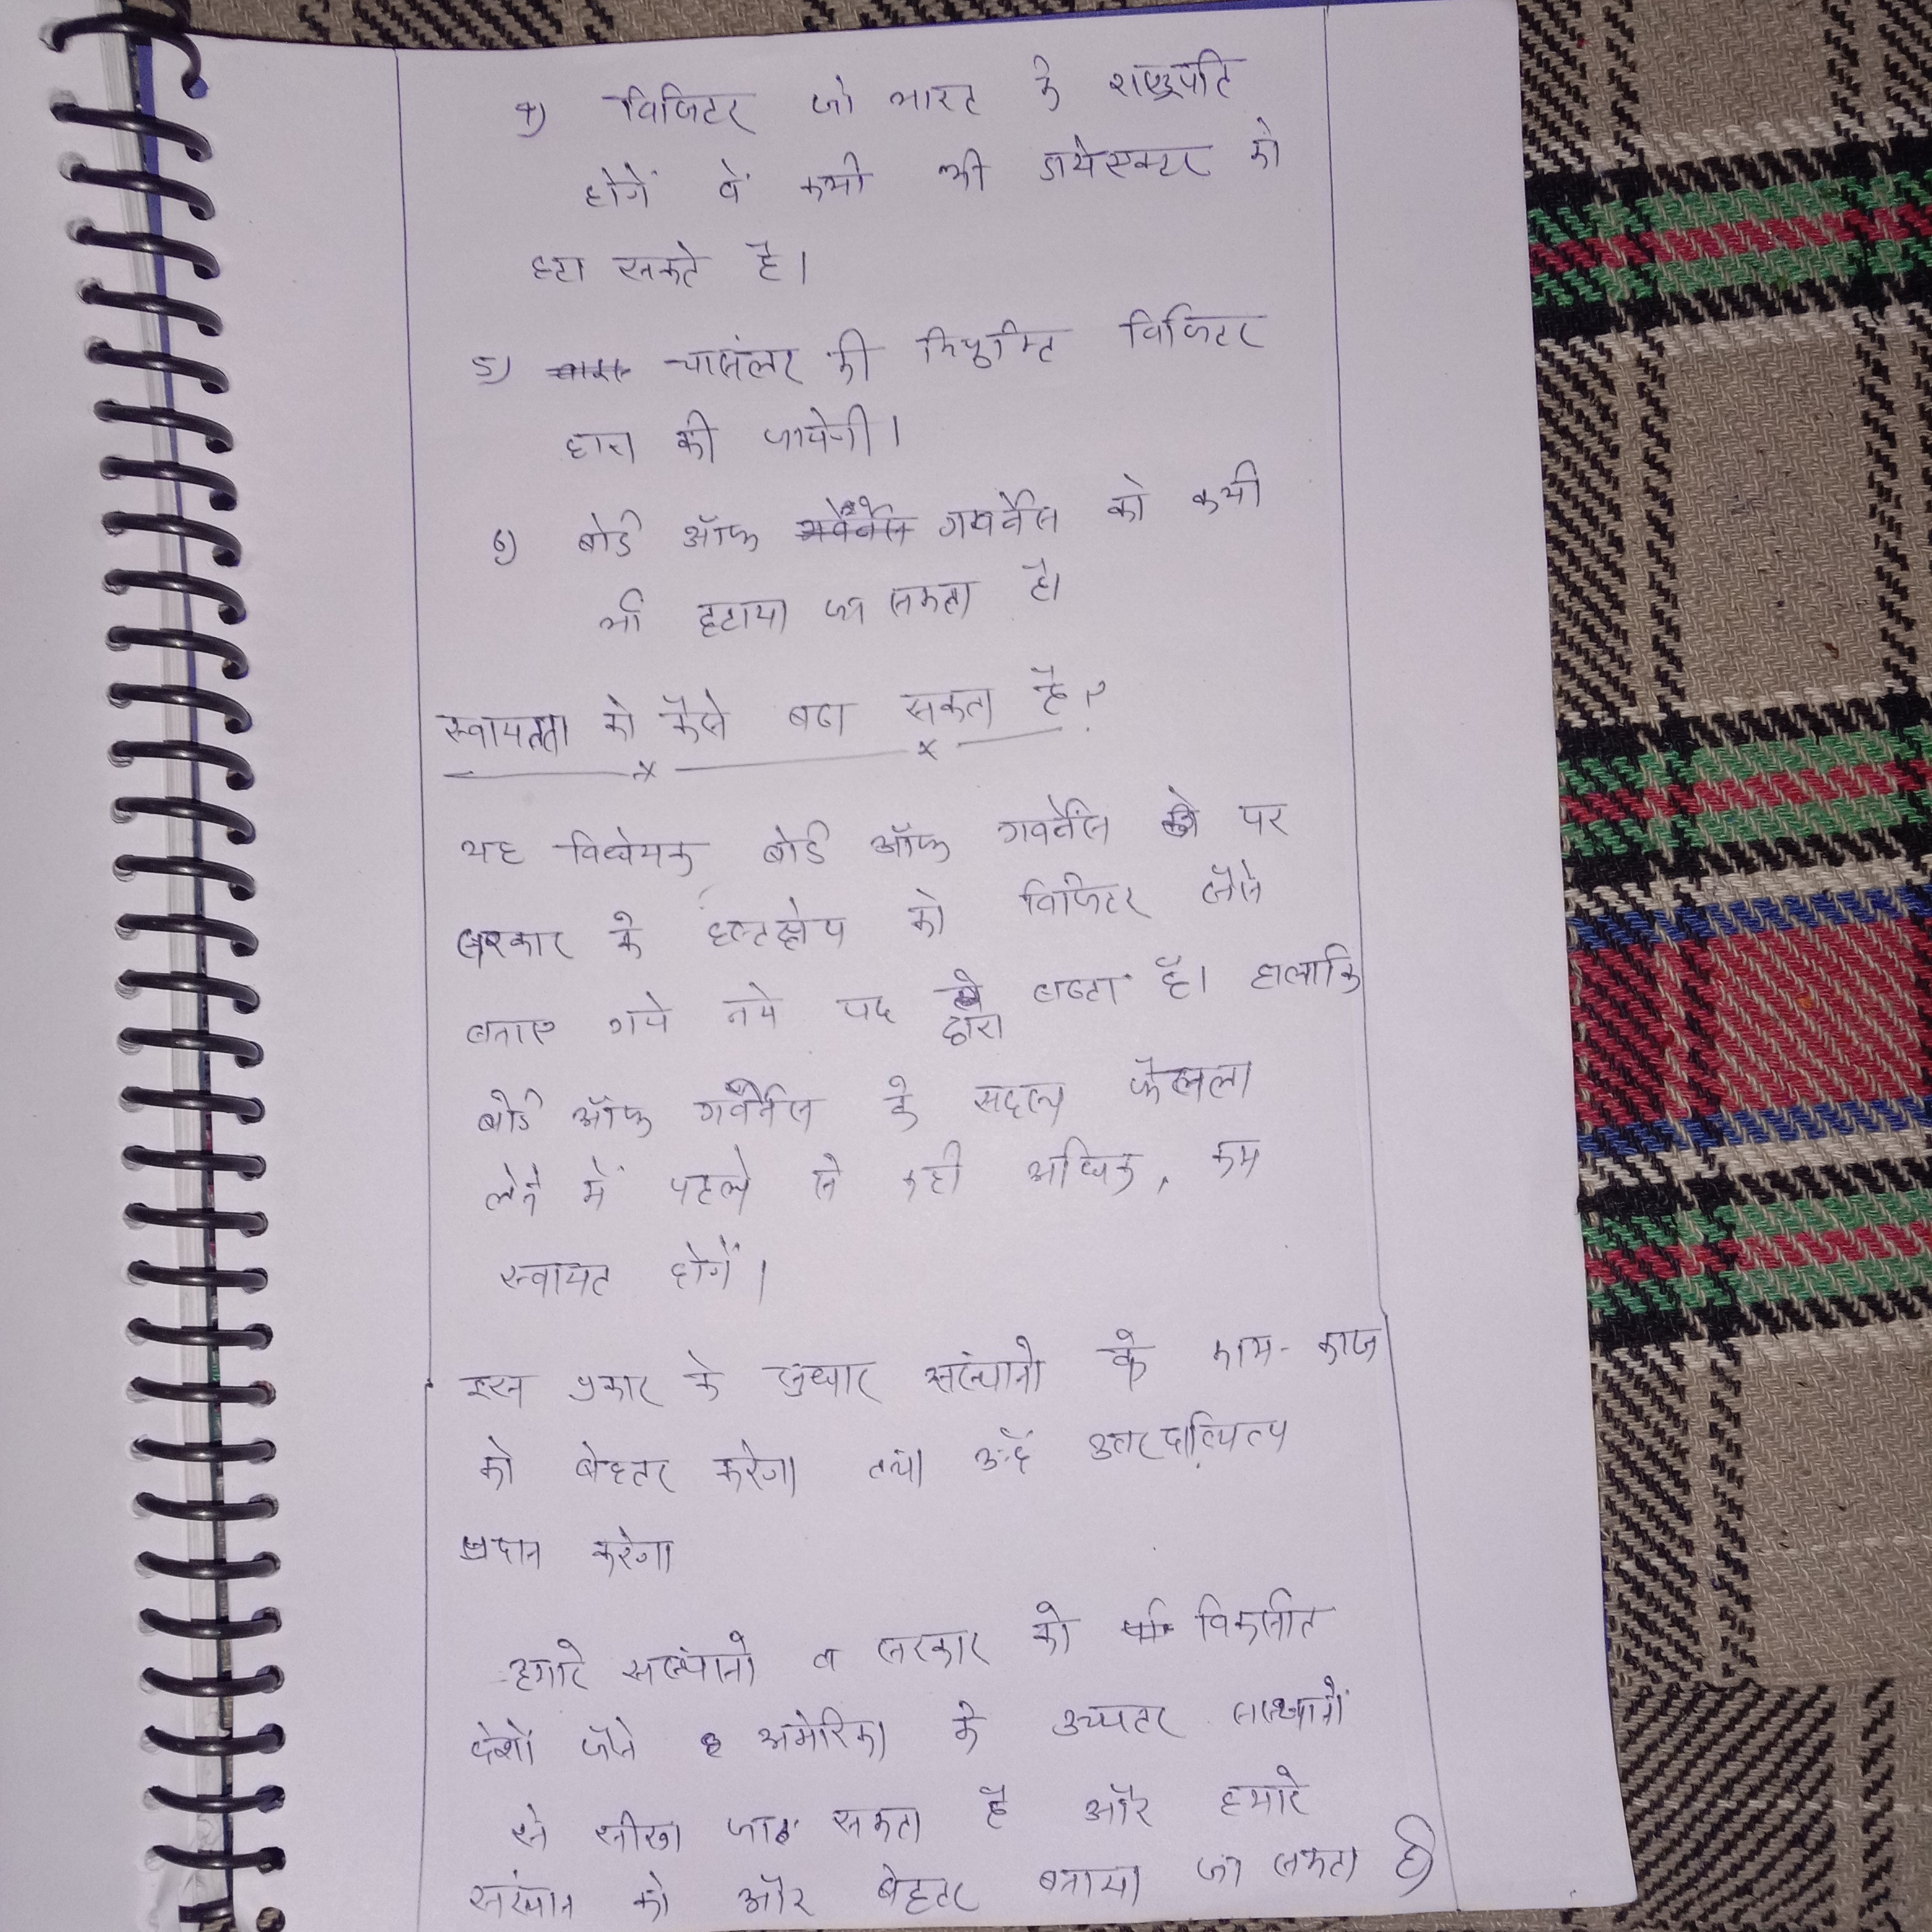 4) विजिटर जो भारत के राष्ट्रपति
होगें वें कभी भी डायेरक्टर को
हटा सकते है।
5) चासंलर की नियुक्ति विजिटर
द्वारा की जायेगी।
6) बोर्ड ऑफ गवर्नेंस को कभी
भी हटाया जा सकता है।
स्वायतता को कैसे बढा सकता है?
यह विधेयक बोर्ड ऑफ गवर्नेंस पर
सरकार के हस्तक्षेप को विजिटर जैसे
बनाए गये नये पद द्वारा बढता है। हालाकि
बोर्ड ऑफ गवर्नेंस के सदस्य फैसला
लेने में पहले से कही अधिक, कम
स्वायत होगें।
इस प्रकार के सुधार संस्थानो के काम-काज
को बेहतर करेगा तथा उन्हें उतरदायित्व
प्रदान करेगा
हमारे संस्थानो व सरकार को विकसीत
देशों जैसे अमेरिका के उच्चतर संस्थानों
से सीखा जा सकता है और हमारे
संस्थान को और बेहतर बनाया जा सकता है